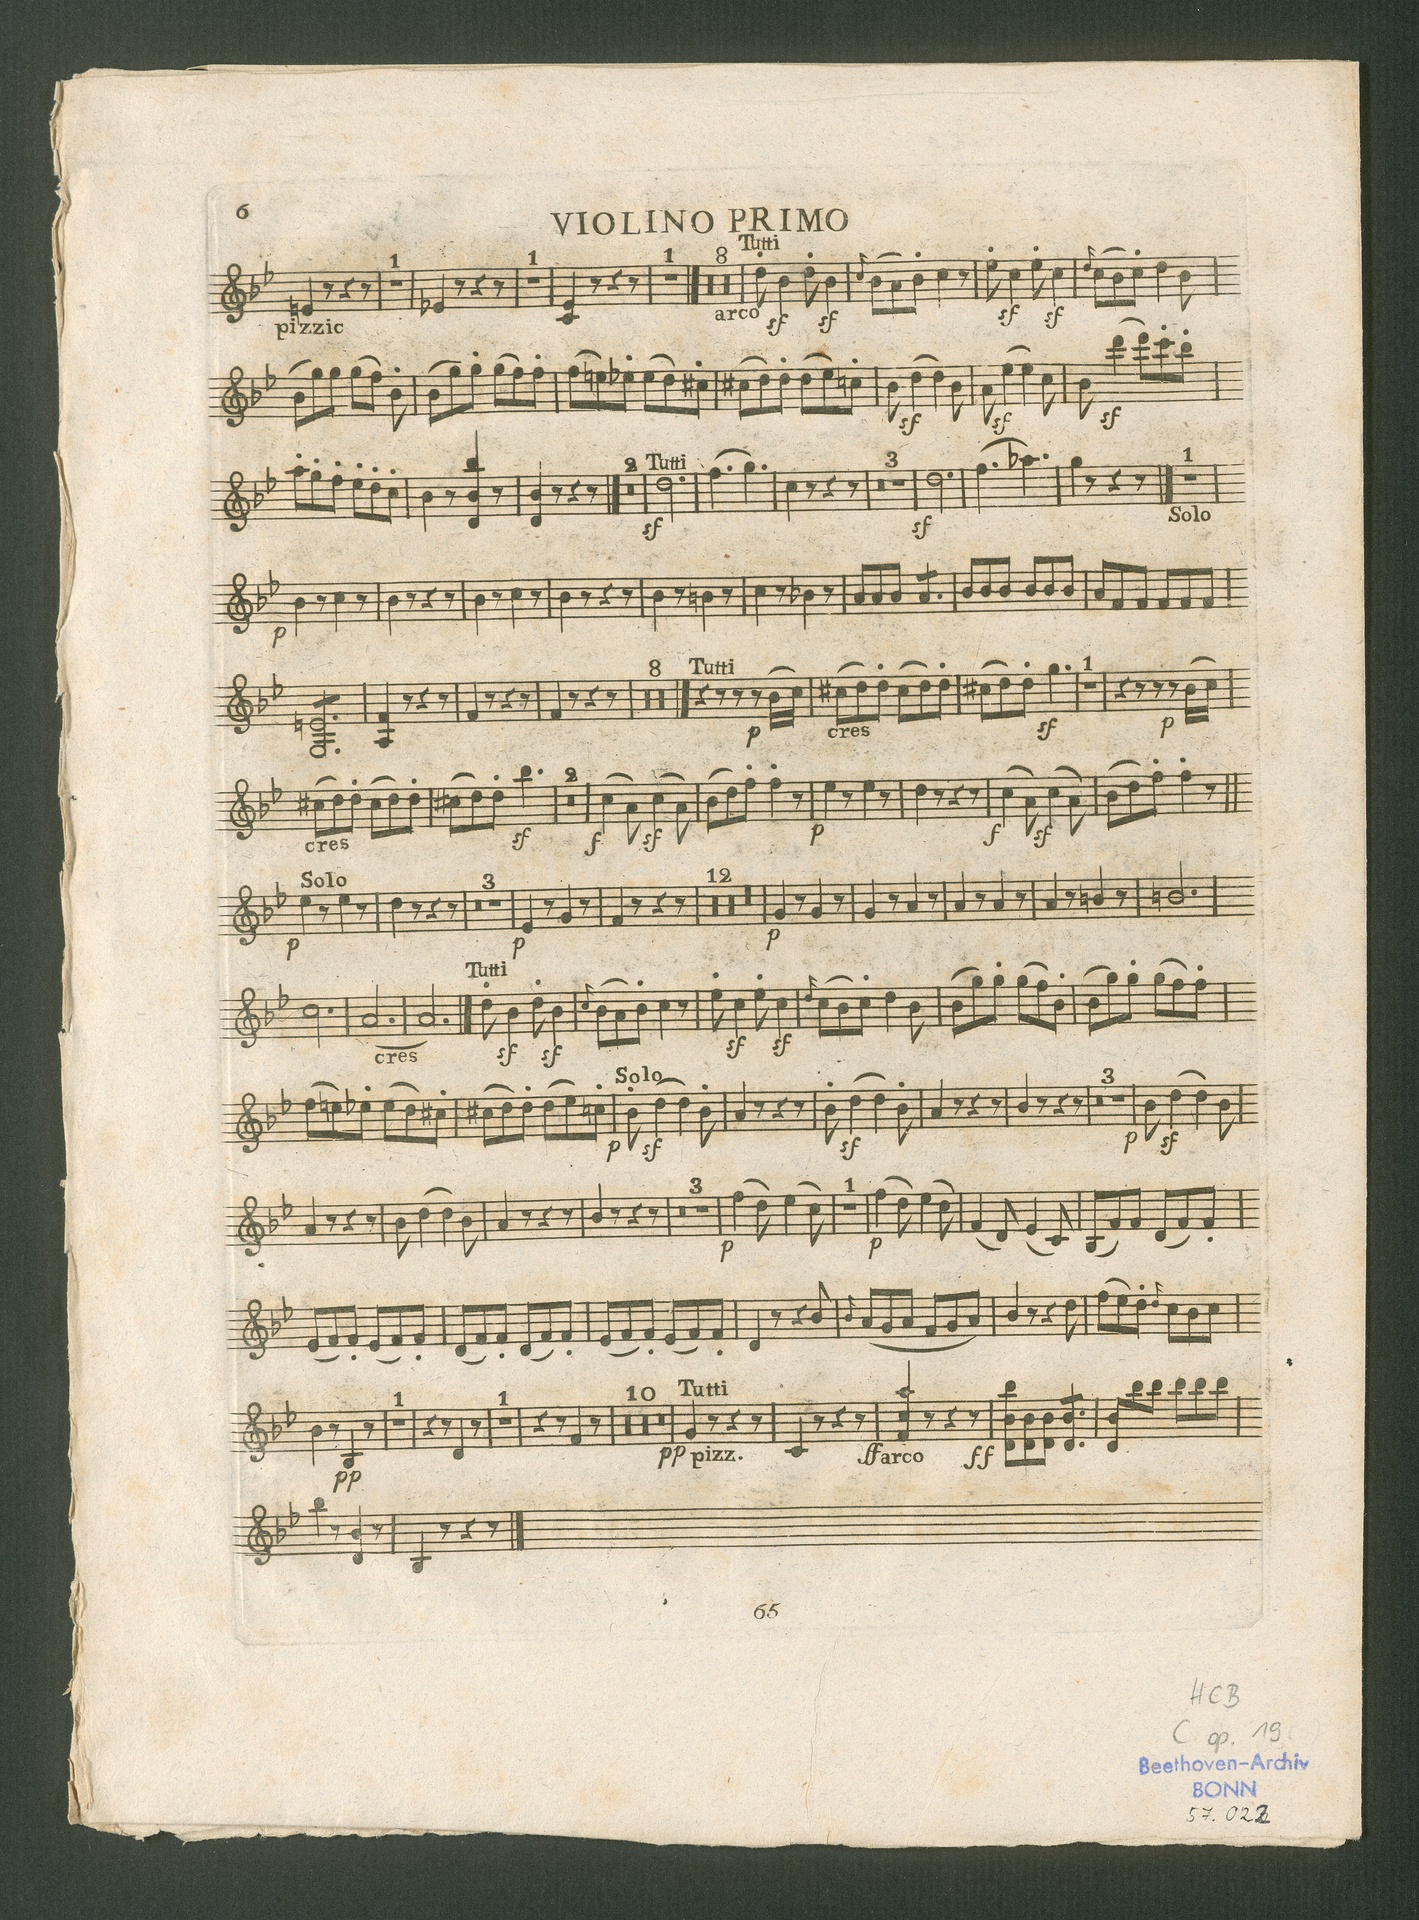 6
VIOLINO PRIMO
1 1 1 8 Tutti
pizzic arco sf sf sf sf
sf sf sf
2 Tutti 3 1
sf sf Solo
p
8 Tutti 1
p cres sf p
2
cres sf f sf p f sf
Solo 3 12
p p p
Tutti
cres sf sf sf sf
Solo 3
p sf sf p sf
3 1
p p
1 1 10 Tutti
pp pp pizz. ff arco ff
65
HCB
C op. 19
Beethoven-Archiv
BONN
57. 022